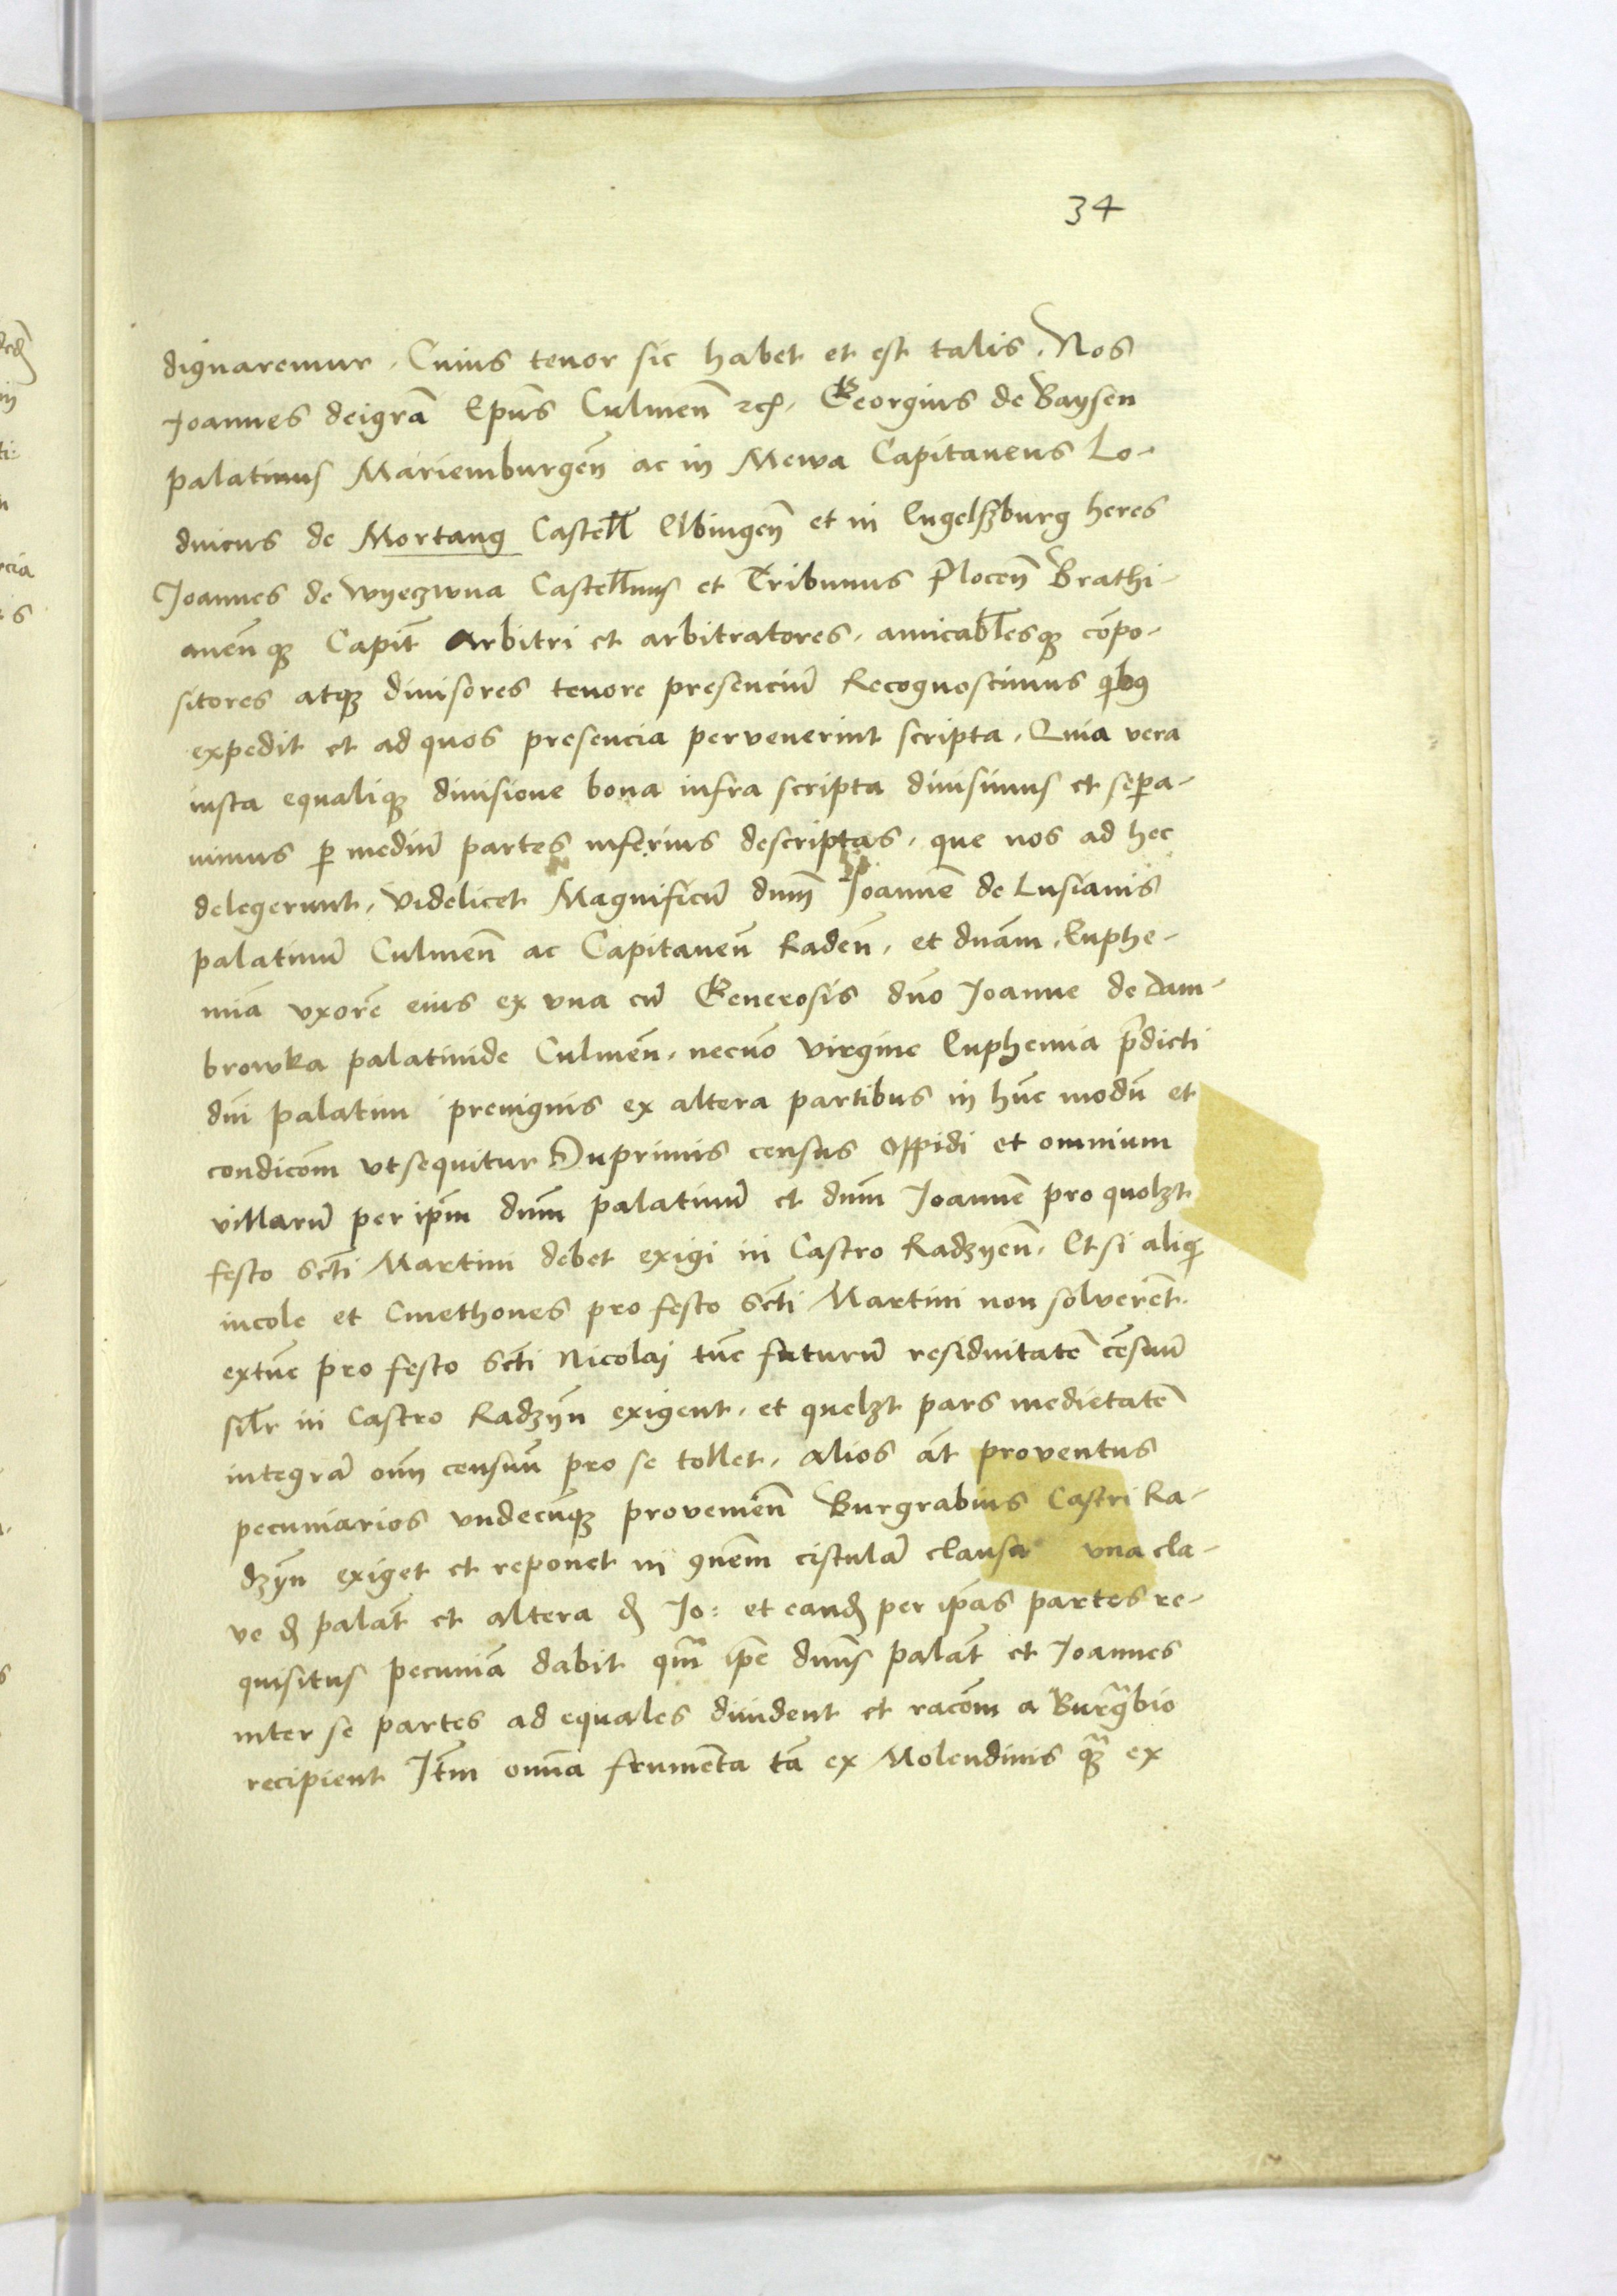 34
dignaremur. Cuius tenor sic habet et est talis. Nos
Joannes deigrã Epũs Culmeñ ɾc̃. Georgius de Baysen
palatinus Mariemburgeñ ac in Mewa Capitaneus Lo-
duicus de Mortang Castell̃ Elbingeñ et in Engelszburg heres
Joannes de Wyeczwna Castell̃nus et Tribunus Ploceñ Brathi-
aneñqȝ Capit̃ Arbitri et arbitratores, amicabl̃esqȝ cõpo-
sitores atqȝ diuisores tenore presenciũ Recognoscimus qibꝯ
expedit et ad quos presencia pervenerint scripta, Quia vera
iusta equaliqȝ diuisione bona infra scripta diuisimus et sepa-
uimus ꝑ mediũ partes inferius descriptas, que nos ad hec
delegerunt, videlicet Magnificũ dnm̃ Joannẽ de Lusianis
palatinũ Culmeñ ac Capitaneũ Radeñ, et dnãm, Euphe-
miã vxorẽ eius ex vna cũ Generosis dño Joanne de Dam-
browka palatinide Culmeñ, necnõ virgine Euphemia p̃dicti
dñi palatini preuignis ex altera partibus in hũc modũ et
condicõm vt sequitur Inprimis census oppidi et omnium
villarũ per ip̃m dnm̃ palatinũ et dnm̃ Joannẽ pro quolȝt
festo Sc̃ti Martini debet exigi in Castro Radzyeñ, Et si aliqi
incole et Cmethones pro festo Sc̃ti Martini non solverẽt.
extũc pro festo Sc̃ti Nicolaj tũc futurũ residuitatẽ cẽsuũ
sil̃r in Castro Radzyñ exigent, et quelȝt pars medietatẽ
integrã om̃ censuũ pro se tollet, alios aũt proventus
pecuniarios vndecũqȝ provenieñ Burgrabius Castri Ra-
dzyñ exiget et reponet in ꝯuem̃ cistulã clausã vna cla-
ve d̃ palat̃ et altera d̃ Jo: et eand̃ per ip̃as partes re-
quisitus pecuniã dabit qm̃ ip̃e dnũs palat̃ et Joannes
inter se partes ad equales diuident et racõm a Burg̃bio
recipient Itm̃ omña frumẽta tã ex Molendinis qȝ̃ ex